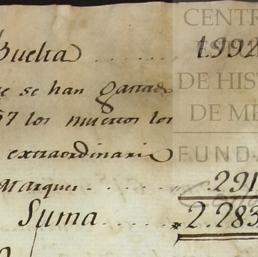 Buelta ..... 1.992
e se han gastado
57 los muertos los
extraordinario
Marques ..... 291
Suma .... 2.283
CENTR
DE HIS
DE M
FUNDA